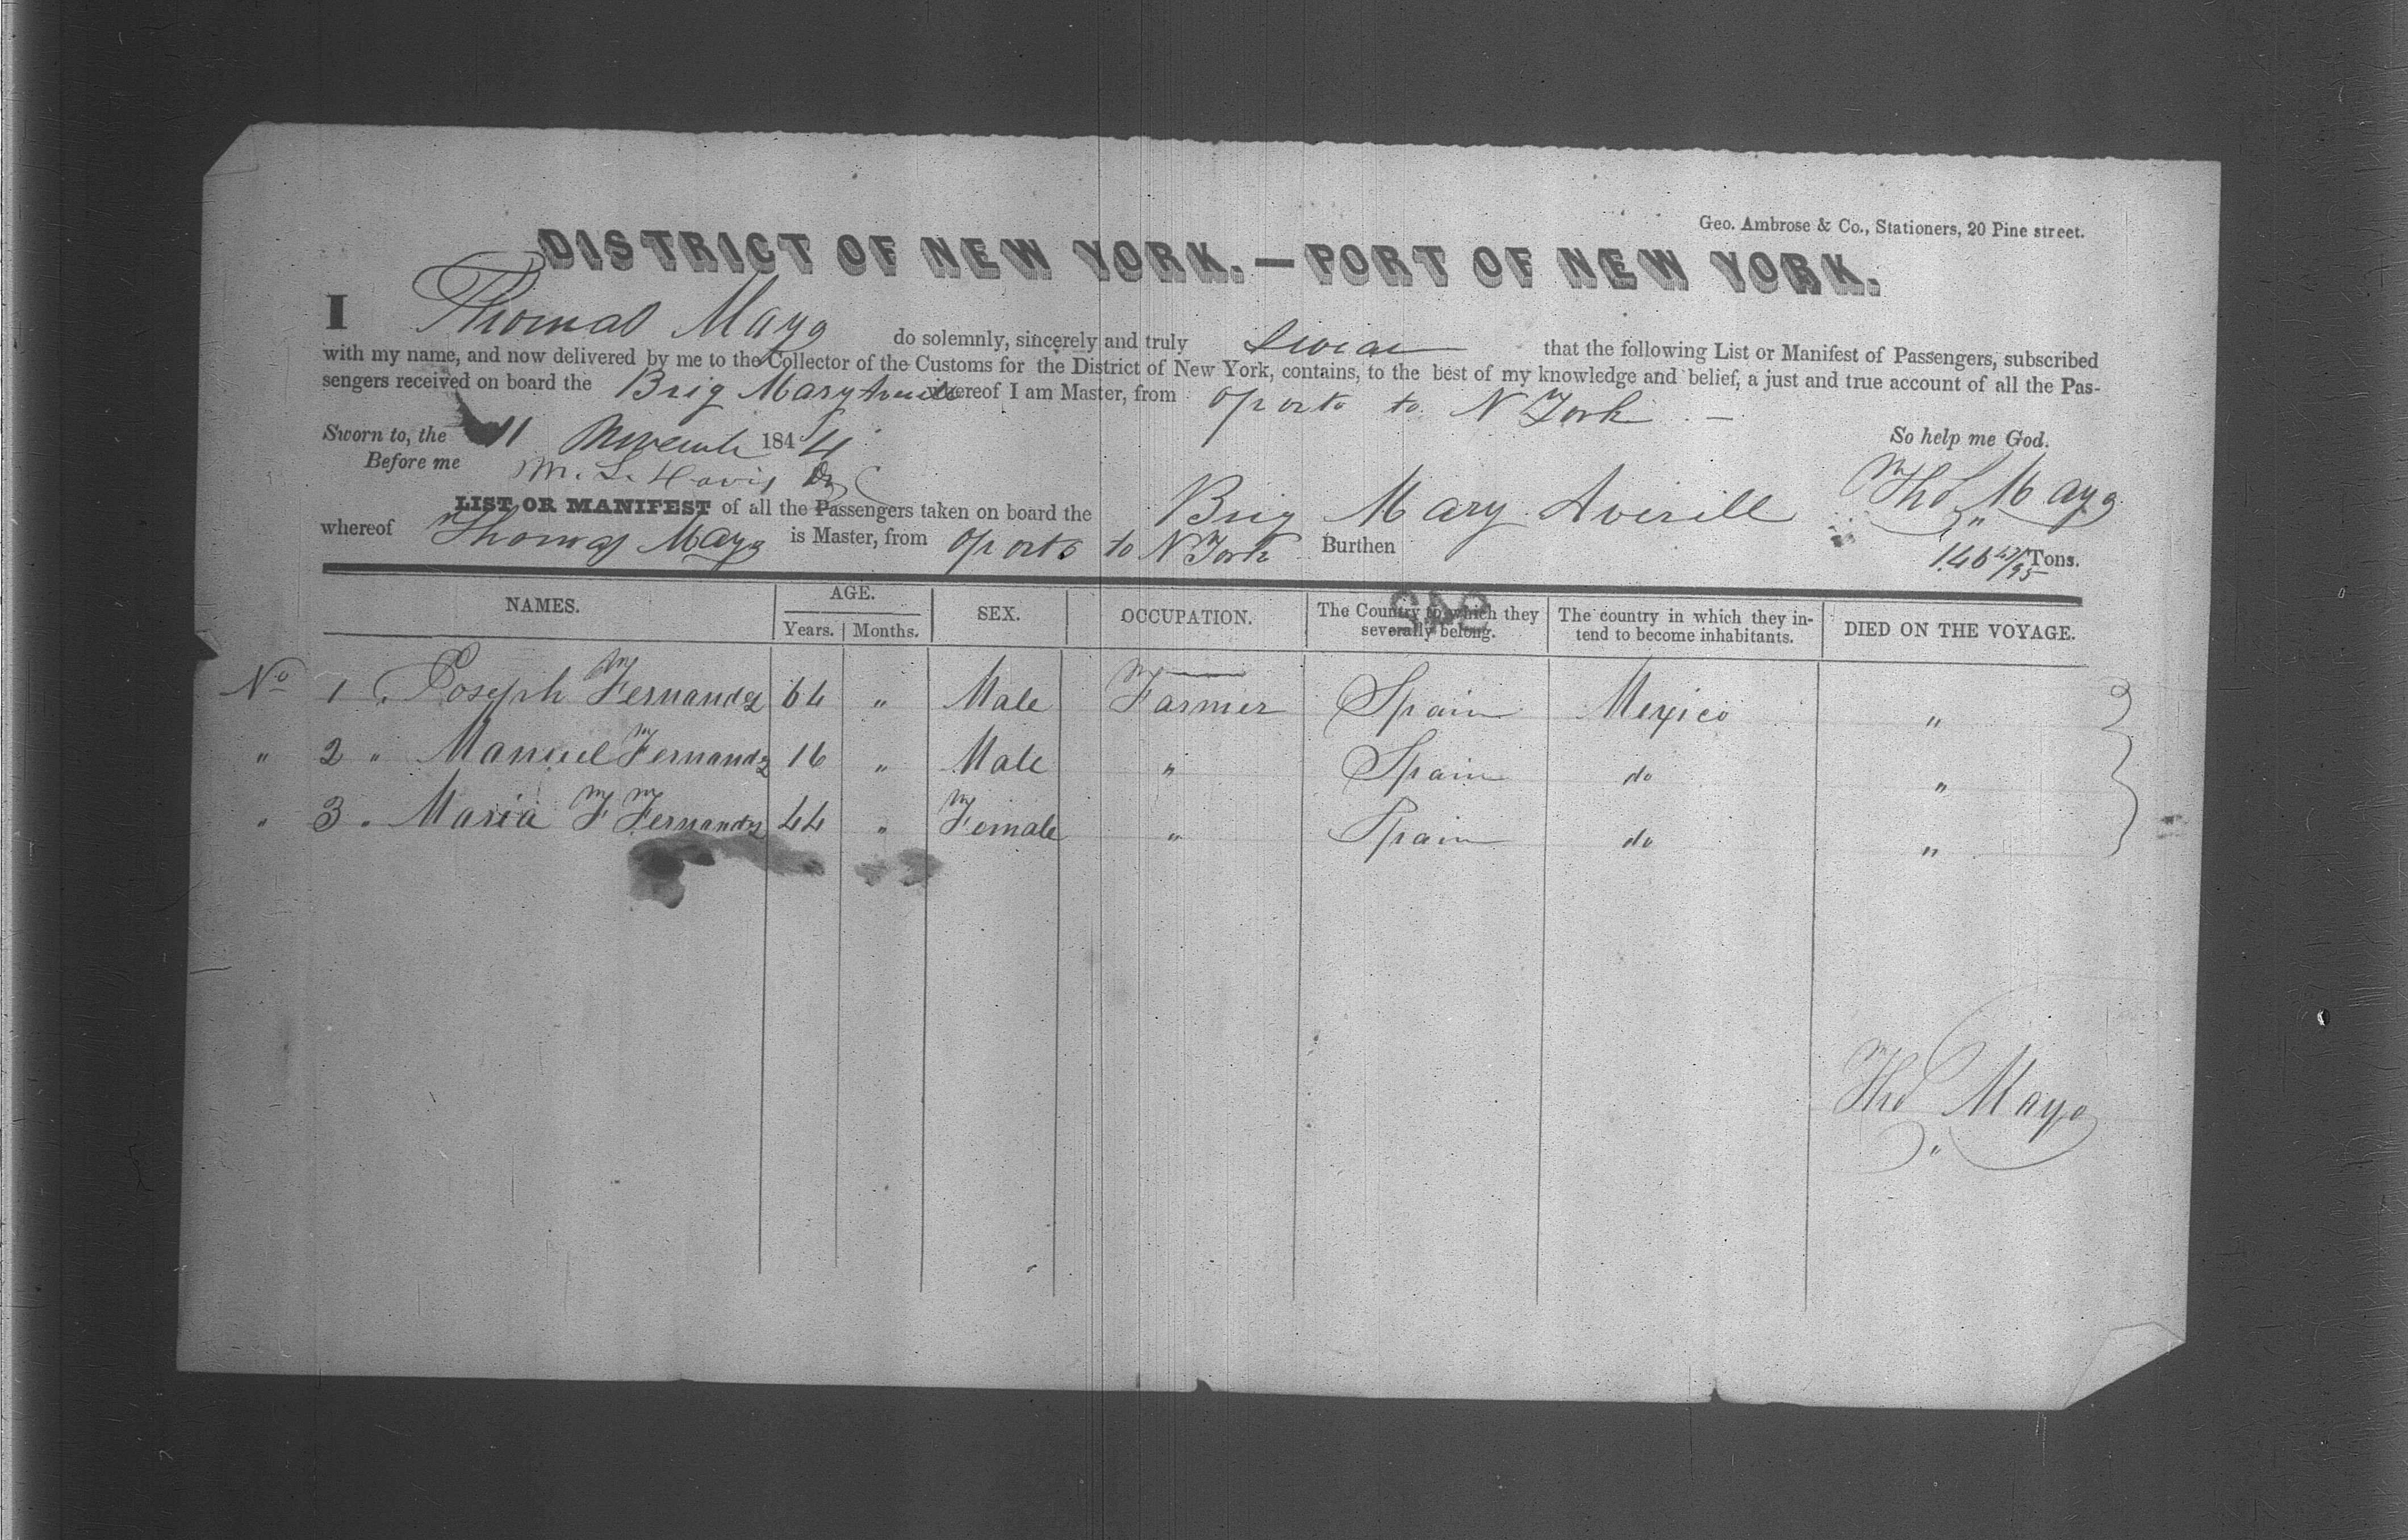 Geo. Ambrose & Co., Stationers, 20 Pine street.
DISTRICT OF NEW YORK.—PORT OF NEW YORK.
I Thomas Mayo do solemnly, sincerely and truly swear that the following List or Manifest of Passengers, subscribed
with my name, and now delivered by me to the Collector of the Customs for the District of New York, contains, to the best of my knowledge and belief, a just and true account of all the Pas-
sengers received on board the Brig Mary Averill whereof I am Master, from Oporto to N York
Sworn to, the 11 November 1844 So help me God.
Before me M. L. Davis Thos Mayo
LIST OR MANIFEST of all the Passengers taken on board the Brig Mary Averill
whereof Thomas Mayo is Master, from Oporto to N York Burthen 146 Tons.
NAMES. AGE. Years. Months. SEX. OCCUPATION. The Country to which they severally belong. The country in which they in-tend to become inhabitants. DIED ON THE VOYAGE.
No 1 . Joseph Fernandez 64 " Male Farmer Spain Mexico "
" 2 " Manuel Fernandz 16 " Male " Spain do "
" 3 . Maria F Fernandz 44 " Female " Spain do "
Thos Mayo